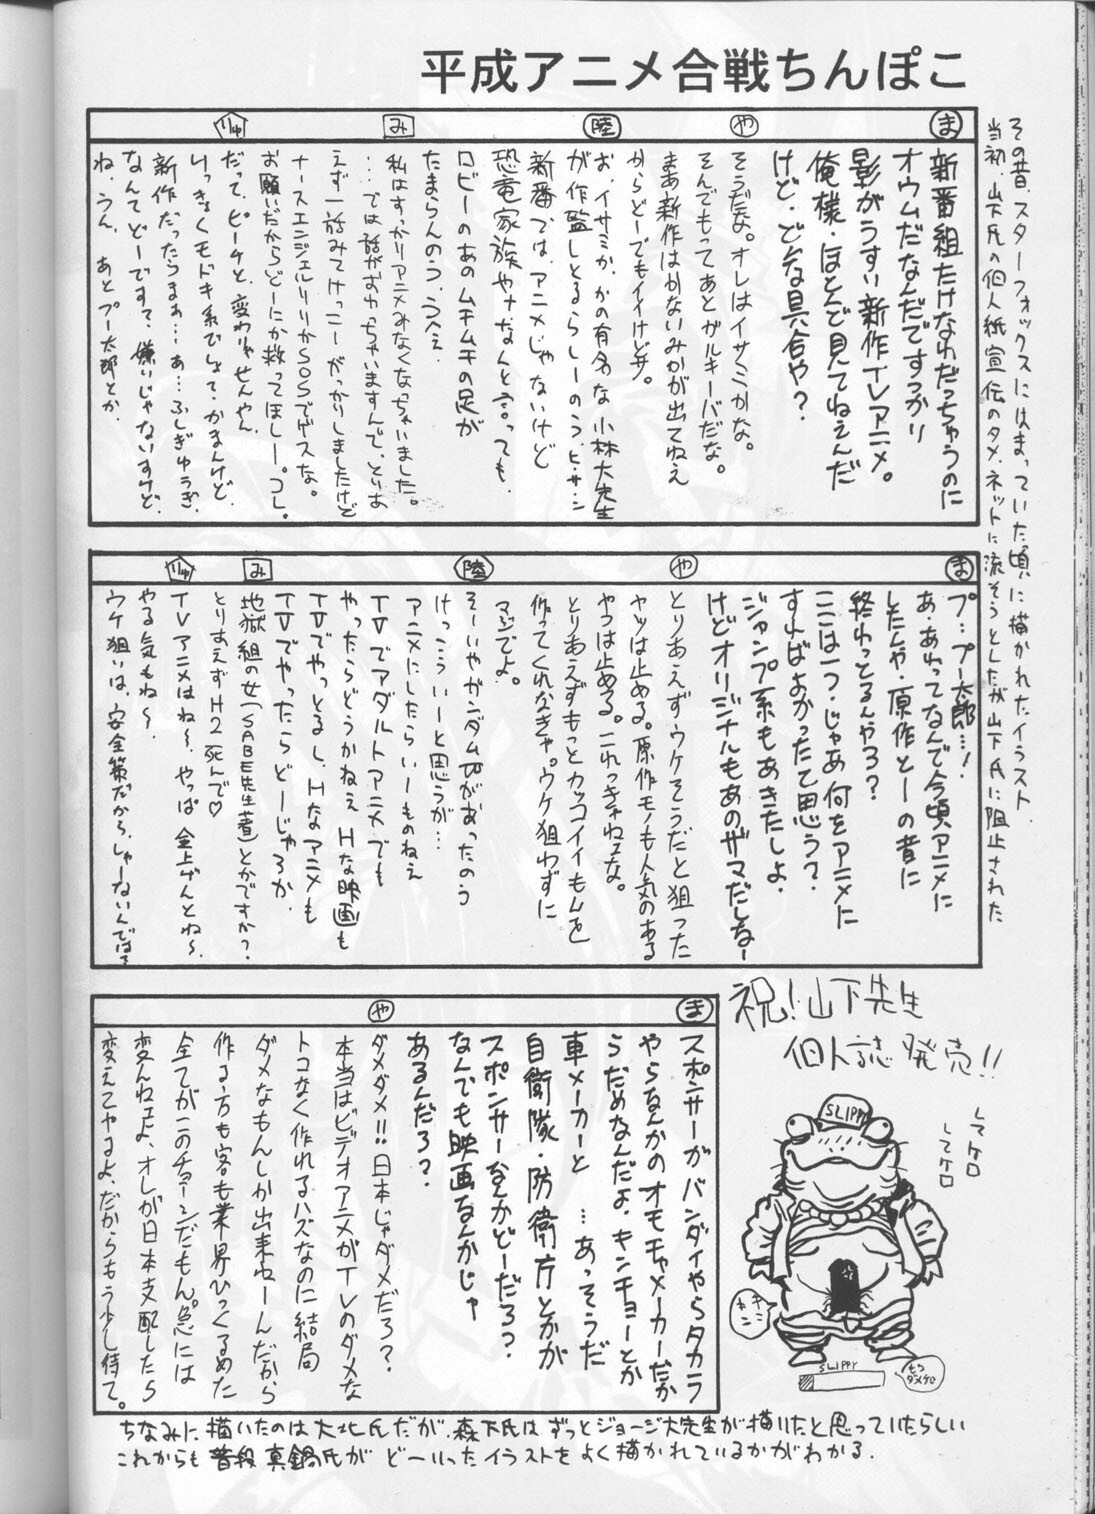 平成アニメ合戦ちんぽこ
その昔、スターフォックスにはまっていた頃に描かれたイラスト。
当初、山下氏の個人紙宣伝のタメ、ネットに流そうとしたが山下氏に阻止された
ま
新番組たけなわだっちゅうのに
オウムだなんだですっかり
影がうすい新作TVアニメ。
俺様・ほとんど見てねえんだ
けど・どんな具合や?
や
そうだな。オレはイサミかな。
そんでもってあとガルキーバだな。
まあ新作はかないみかが出てねえ
からどーでもイイけどサ。
陸
お、イサミか、かの有名な小林大先生
が作監しとるらしーのう、ヒ・サ・シ
新番では、アニメじゃないけど
恐竜家族やナなんと言っても、
ロビーのあのムチムチの足が
たまらんのう、うへえ
み
私はすっかりアニメみなくなっちゃいました。
…では話がおわっちゃいますんで、とりあ
えず一話みてけっこーがっかりしましたけど
ナースエンジェルリリカSOSでゲスな。
お願いだからどーにか救ってほしー。コレ。
りゅ
だって、ピーチと、変わりゃせんやん
いっきょくモドキ系でしょて・かまんけど
新作だったらまぁ…あ…ふしぎゆうぎ、
なんてどーですて、嫌いじゃないすけど、
ね、うん、あとプー太郎とか、
ま
プ…プー太郎…!
あ・あれってなんで今頃アニメに
したんや・原作とーの昔に
終わっとるんやろ?
ここは一つ・じゃあ何をアニメに
すればよかったて思う?
ジャンプ系もあきたしよ、
けどオリジナルもあのザマだしなー
や
とりあえずウケそうだと狙った
ヤツは止める。原作モノも人気のある
やつは止める。これっきゃねェな。
とりあえずもっとカッコイイもんを
作ってくれなきゃ。ウケ狙わずに
マジでよ。
陸
そーいやガンダムWがあったのう
けっこういーと思うが…
アニメにしたらいーものねえ
TVでアダルトアニメでも
やったらどうかねぇHな映画も
TVでやっとるし、Hなアニメも
TVでやったらどーじゃろか
み
地獄組の女(SABE先生著)とかですか?
とりあえずH2死んで♡
りゅ
TVアニメはね〜、やっぱ金上げんとね〜、
やる気もね〜
ウケ狙いは、安全策だから、しゃーないんでは?
祝!山下先生
個人誌発売!!
SLIPPY
してケロ
してケロ
キンキン
SLIPPY
もうダメケロ
ま
スポンサーがバンダイやらタカラ
やらなんかのオモチャメーカーだか
らだめなんだよ、キンチョーとか
車メーカーと…あっそうだ
自衛隊・防衛庁とかが
スポンサーなんかどーだろ?
なんでも映画なんかじゃ
あるんだろ?
や
ダメダメ!!日本じゃダメだろ?
本当はビデオアニメがTVのダメな
トコなく作れるハズなのに結局
ダメなもんしか出来ねーんだから
作る方も客も業界ひっくるめた
全てがこのチョーシだもん。急には
変んねェよ、オレが日本支配したら
変えてやるよ、だからもう少し待て。
ちなみに描いたのは大北氏だが、森下氏はずっとジョージ大先生が描いたと思っていたらしい
これからも普段真鍋氏がどーいったイラストをよく描かれているかがわかる.